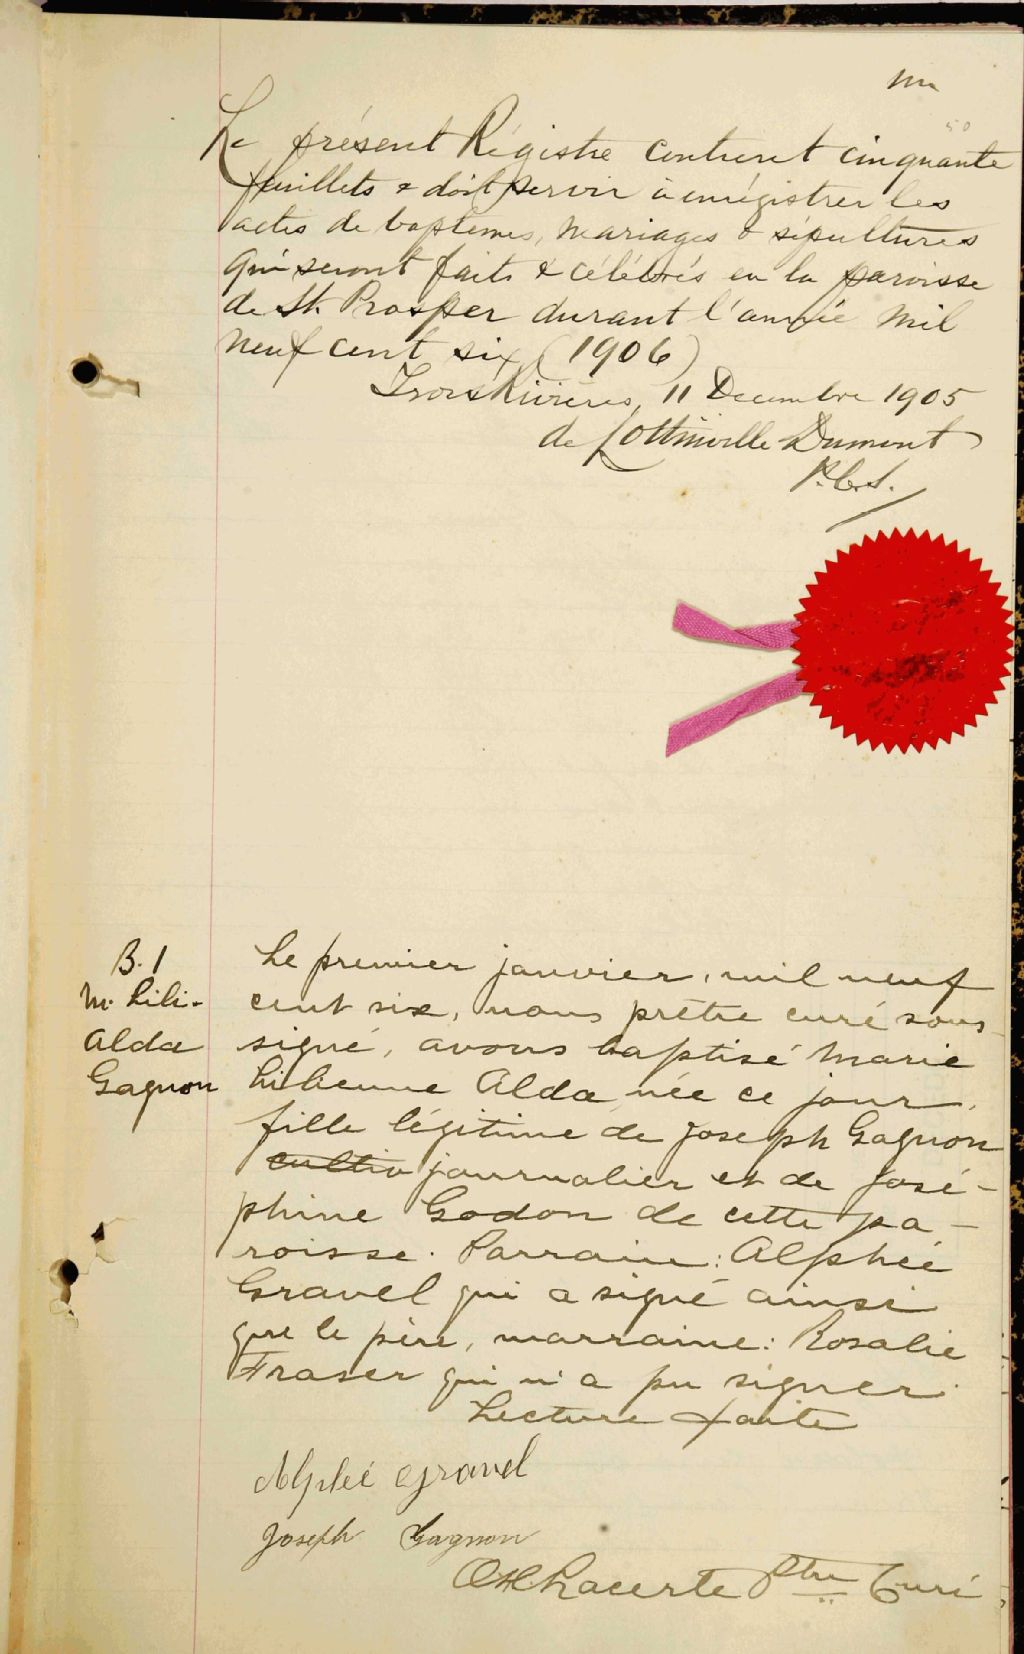 un
50
Le présent Régistre contient cinquante
feuillets & doit servir à enrégistrer les
actes de baptemes, mariages & sépultures
qui seront faits & célébrés en la paroisse
de St. Prosper durant l'année mil
neuf cent six (1906)
Trois Rivières, 11 Decembre 1905
de Lottinville Dumont
P.C.S.
B. 1
M. Lili-
Alda
Gagnon
Le premier janvier, mil neuf
cent six, nous prêtre curé sous
signé, avons baptisé Marie
Lilienne Alda, née ce jour,
fille légitime de Joseph Gagnon
cultiv journalier et de José-
phine Godon de cette pa-
roisse. Parrain: Alpheé
Gravel qui a signé ainsi
que le père, marraine: Rosalie
Fraser qui n'a pu signer.
Lecture faite
Alpheé Gravel
Joseph Gagnon
Lacerte Ptre Curé